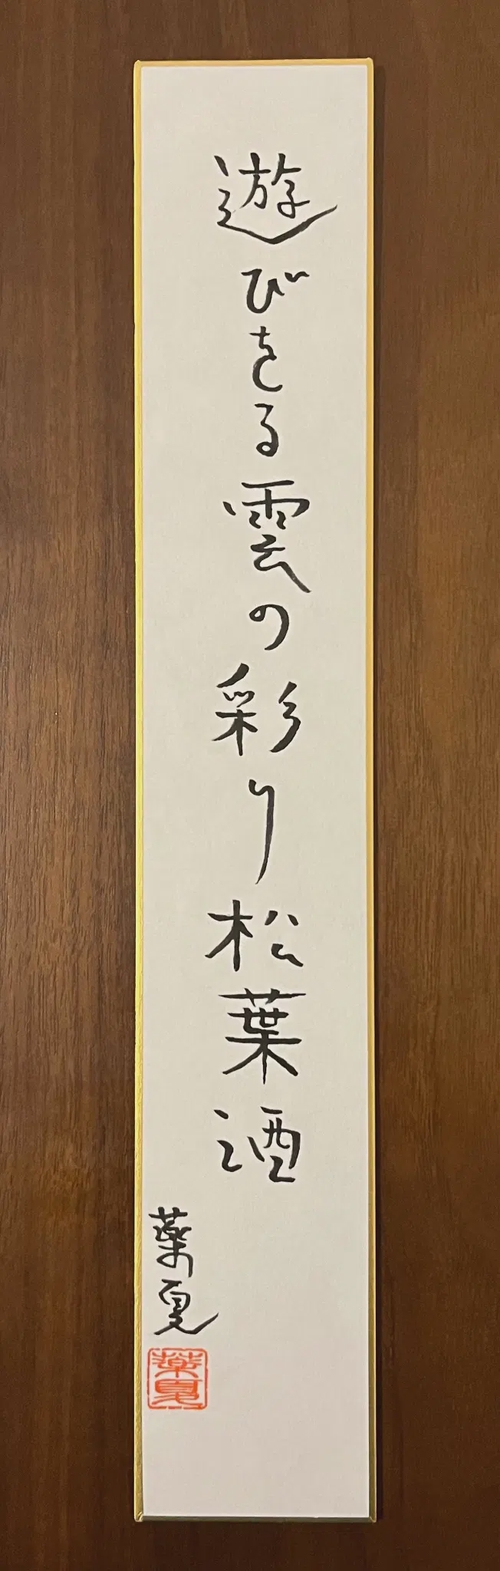 遊びをる雲の彩り松葉酒
薬夏
薬夏